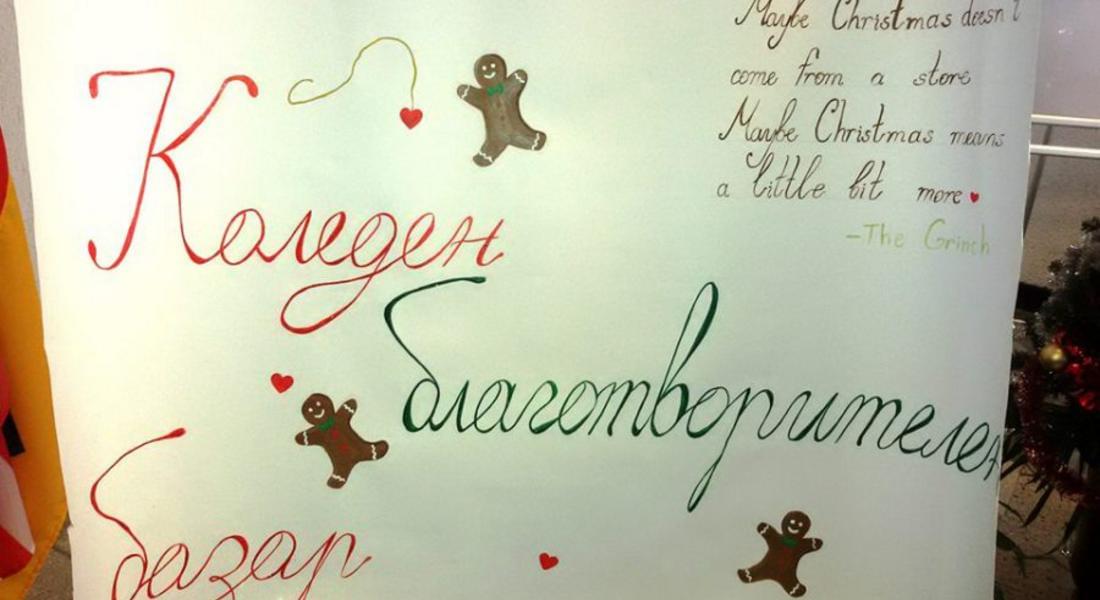 Maybe Christmas doesn't
come from a store
Maybe Christmas means
a little bit more
-The Grinch
Коледен
благотворителен
базар